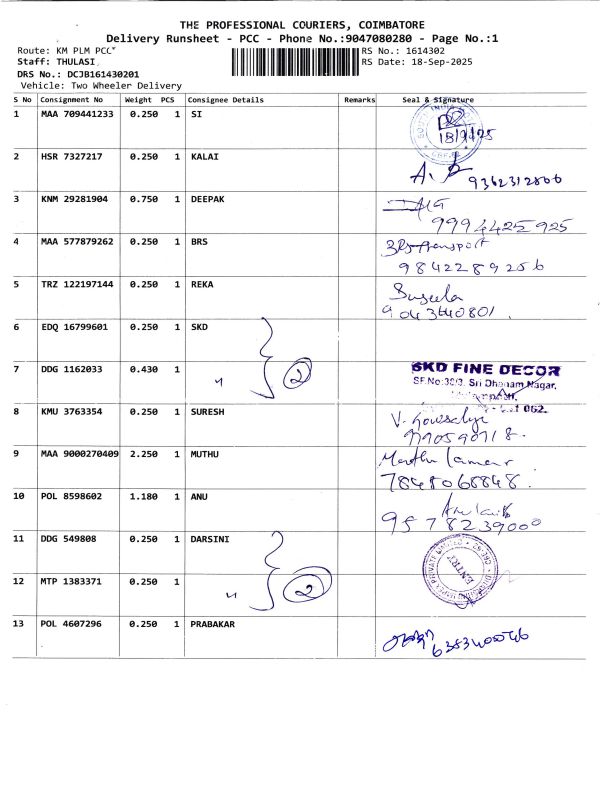 THE PROFESSIONAL COURIERS, COIMBATORE
Delivery Runsheet - PCC - Phone No.:9047080280 - Page No.:1
Route: KM PLM PCC* RS No.: 1614302
Staff: THULASI RS Date: 18-Sep-2025
DRS No.: DCJB161430201
Vehicle: Two Wheeler Delivery
S No Consignment No Weight PCS Consignee Details Remarks Seal & Signature
1 MAA 709441233 0.250 1 SI 18/9/25
2 HSR 7327217 0.250 1 KALAI 9362312866
3 KNM 29281904 0.750 1 DEEPAK
9994425925
4 MAA 577879262 0.250 1 BRS BRS Transport
9842289256
5 TRZ 122197144 0.250 1 REKA Suseela
9043640801.
6 EDQ 16799601 0.250 1 SKD
2
7 DDG 1162033 0.430 1 " SKD FINE DECOR
SF.No:39/3, Sri Dhanam Nagar,
8 KMU 3763354 0.250 1 SURESH V. Gowsalya
9 MAA 9000270409 2.250 1 MUTHU Muthu Kumar
7848068848.
10 POL 8598602 1.180 1 ANU
9578239000
11 DDG 549808 0.250 1 DARSINI
2 ENTRY
12 MTP 1383371 0.250 1 "
13 POL 4607296 0.250 1 PRABAKAR
6383400046